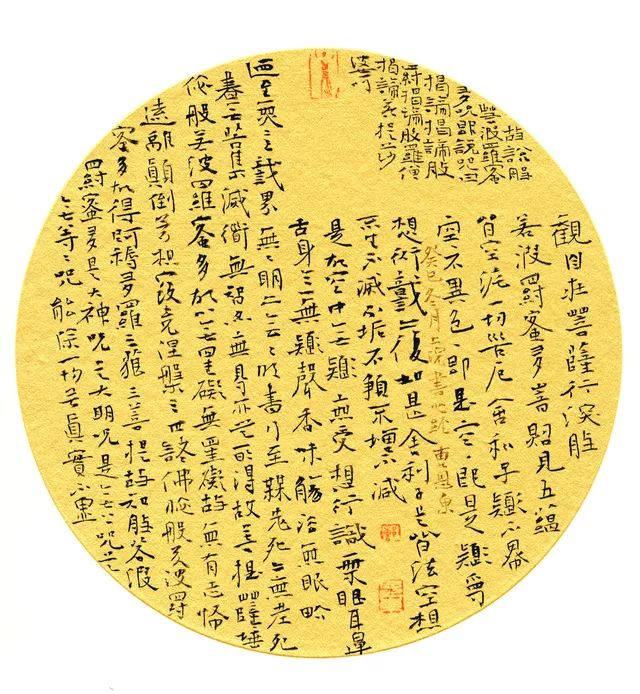 觀自在菩薩行深般
若波羅蜜多時照見五蘊
皆空度一切苦厄舍利子色不異
空空不異色色即是空空即是色受
想行識亦復如是舍利子是諸法空相
不生不滅不垢不淨不增不減
是故空中無色無受想行識無眼耳鼻
舌身意無色聲香味觸法無眼界
乃至無意識界無無明亦無無明盡乃至無老死亦無老死
盡無苦集滅道無智亦無得以無所得故菩提薩埵
依般若波羅蜜多故心無罣礙無罣礙故無有恐怖
遠離顛倒夢想究竟涅槃三世諸佛依般若波羅
蜜多故得阿耨多羅三藐三菩提故知般若波
羅蜜多是大神咒是大明咒是無上咒是
無等等咒能除一切苦真實不虛
故說般
若波羅蜜
多咒即說咒曰
揭諦揭諦般
羅揭諦般羅僧
揭諦菩提莎
婆訶
癸巳冬月書心跡